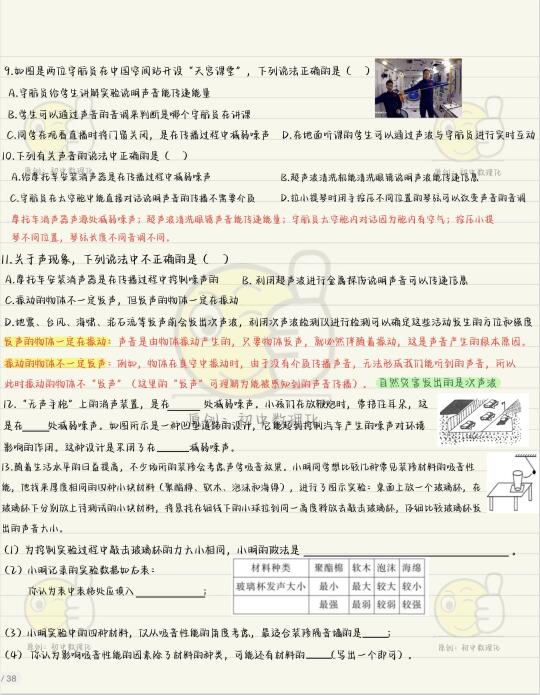 9.如图是两位宇航员在中国空间站开设“天宫课堂”，下列说法正确的是（ ）
A.宇航员给学生讲解实验说明声音能传递能量
B.学生可以通过声音的音调来判断是哪个宇航员在讲课
C.同学在观看直播时将门窗关闭，是在传播过程中减弱噪声 D.在地面听课的学生可以通过声波与宇航员进行实时互动
10.下列有关声音的说法中正确的是（ ）
A.给摩托车安装消声器是在传播过程中减弱噪声 B.超声波清洗机能清洗眼镜说明声波能传递信息
C.宇航员在太空舱中能直接对话说明声音的传播不需要介质 D.拉小提琴时用手按压不同位置的琴弦可以改变声音的音调
摩托车消声器声源处减弱噪声；超声波清洗眼镜声音能传递能量；宇航员太空舱内对话因为舱内有空气；按压小提
琴不同位置，琴弦长度不同音调不同。
11.关于声现象，下列说法中不正确的是（ ）
A.摩托车安装消声器是在传播过程中控制噪声的 B.利用超声波进行金属探伤说明声音可以传递信息
C.振动的物体不一定发声，但发声的物体一定在振动
D.地震、台风、海啸、泥石流等发声前会发出次声波，利用次声波检测仪进行检测可以确定这些活动发生的方位和强度
发声的物体一定在振动：声音是由物体振动产生的，只要物体发声，就必然伴随着振动，这是声音产生的根本原因。
振动的物体不一定发声：例如，物体在真空中振动时，由于没有介质传播声音，无法形成我们能听到的声音，所以
此时振动的物体不“发声”（这里的“发声”可理解为能被感知到的声音传播）。 自然灾害发出的是次声波
12.“无声手枪”上的消声装置，是在____处减弱噪声。小孩们在放鞭炮时，常捂住耳朵，这
是在____处减弱噪声。如图所示是一种凹型道路的设计，它能起到控制汽车产生的噪声对环境
影响的作用。这种设计是采用了在____减弱噪声。
13.随着生活水平的日益提高，不少场所的装修会考虑声音吸音效果。小明同学想比较几种常见装修材料的吸音性
能，他找来厚度相同的四种小块材料（聚酯棉、软木、泡沫和海绵），进行了图示实验：桌面上放一个玻璃杯，在
玻璃杯下分别放上待测试的小块材料，将悬挂在细线下的小球拉到同一高度释放去敲击玻璃杯，仔细比较玻璃杯发
出的声音大小。
（1）为控制实验过程中敲击玻璃杯的力大小相同，小明的做法是____。
（2）小明记录的实验数据如右表：
材料种类 聚酯棉 软木 泡沫 海绵
玻璃杯发声大小 最小 最大 较大 较小
你认为表中表格处应填入____；
最强 最弱 较弱 较强
（3）小明实验中的四种材料，仅从吸音性能的角度考虑，最适合装修隔音墙的是____；
（4）你认为影响吸音性能的因素除了材料的种类，可能还有材料的____（写出一个即可）。
原创：初中数理化
/ 38